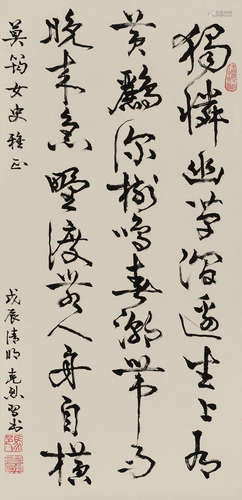 獨憐幽草澗邊生上有
黃鸝深樹鳴春潮帶雨
晚來急野渡無人舟自橫
莫筠女史雅正
戊辰清明